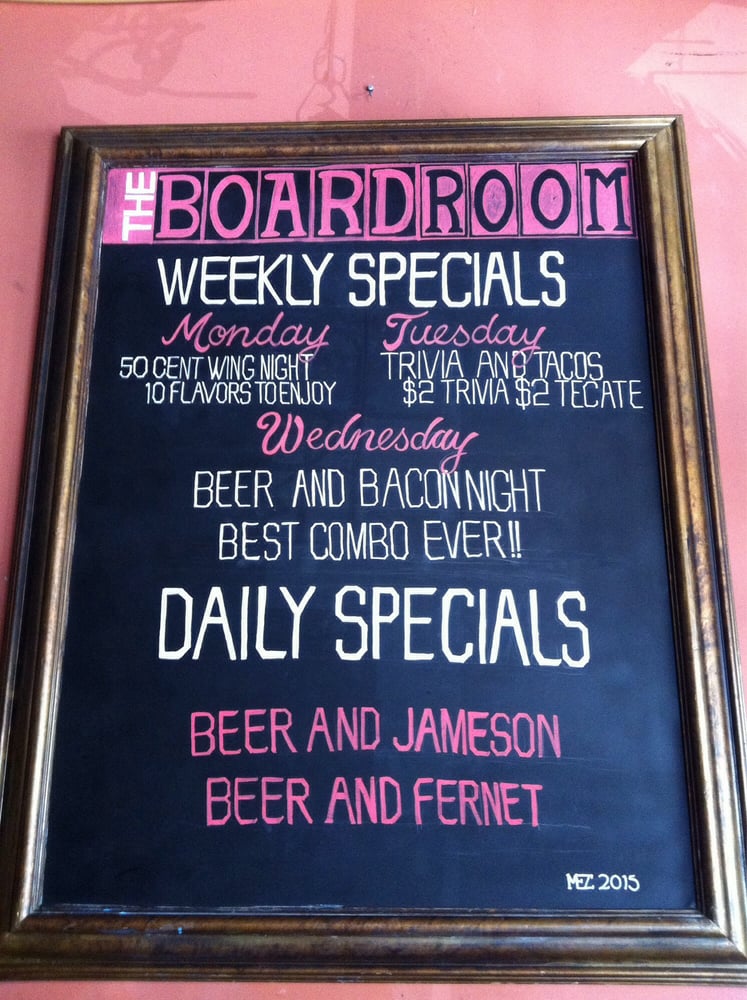 THE BOARDROOM
WEEKLY SPECIALS
Monday
50 CENT WING NIGHT
10 FLAVORS TO ENJOY
Tuesday
TRIVIA AND TACOS
$2 TRIVIA $2 TECATE
Wednesday
BEER AND BACON NIGHT
BEST COMBO EVER!!
DAILY SPECIALS
BEER AND JAMESON
BEER AND FERNET
MEZ 2015